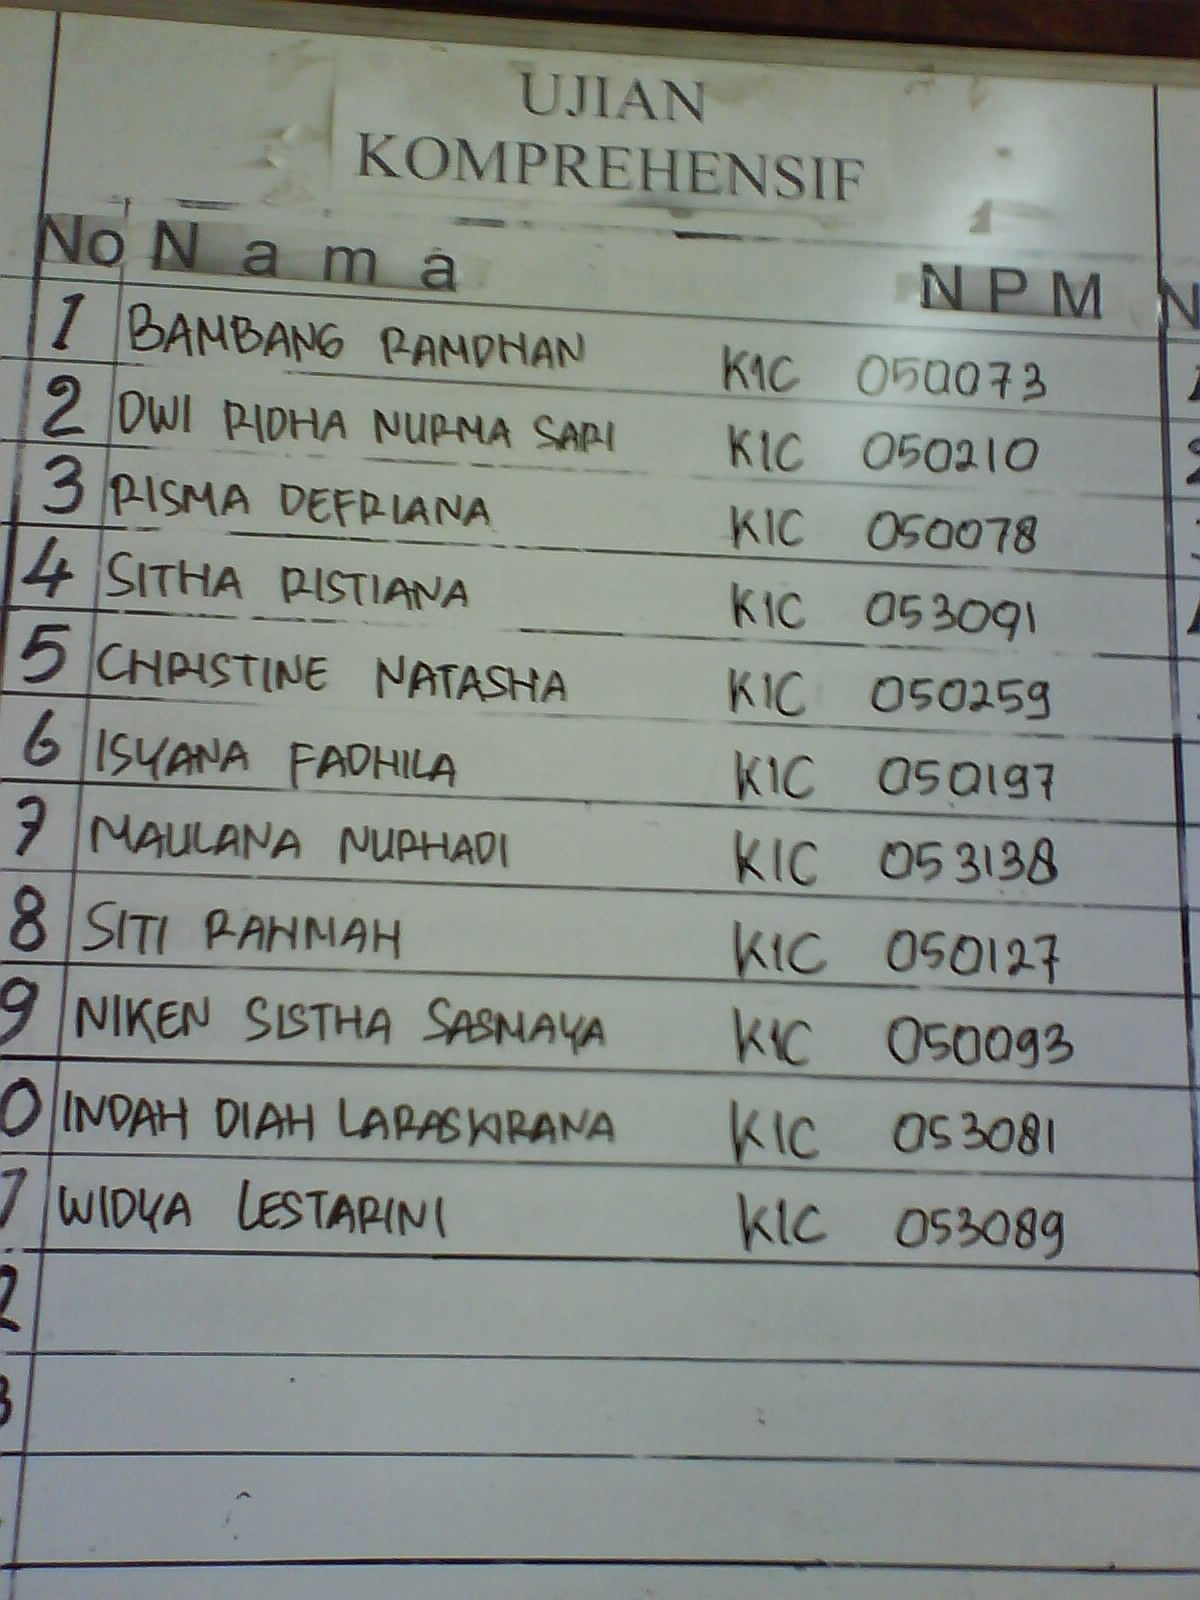 UJIAN
KOMPREHENSIF
No Nama NPM
1 BAMBANG RAMDHAN K1C 050073
2 DWI RIDHA NURMA SARI K1C 050210
3 RISMA DEFRIANA K1C 050078
4 SITHA RISTIANA K1C 053091
5 CHRISTINE NATASHA K1C 050259
6 ISYANA FADHILA K1C 050197
7 MAULANA NURHADI K1C 053138
8 SITI RAHMAH K1C 050127
9 NIKEN SISTHA SASMAYA K1C 050093
0 INDAH DIAH LARASKIRANA K1C 053081
1 WIDYA LESTARINI K1C 053089
2
3